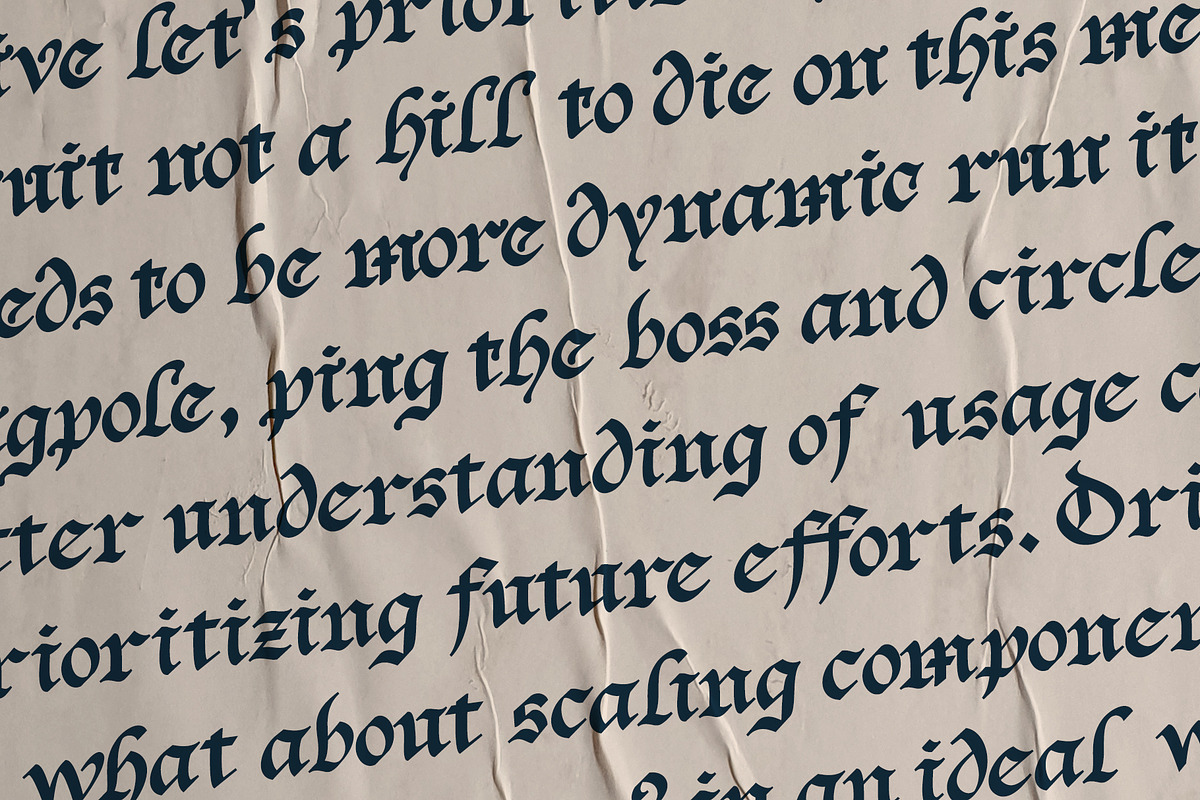 ive let's prior
ruit not a hill to die on this me
eds to be more dynamic run it
gpole, ping the boss and circle
tter understanding of usage c
rioritizing future efforts. Dri
what about scaling componen
? in an ideal w